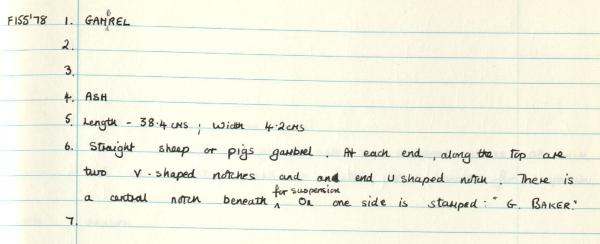 F155'78 1. GAMBREL
2.
3.
4. ASH
5. Length - 38.4 cms ; Width 4.2 cms
6. Straight sheep or pigs gambrel. At each end, along the top are
two V-shaped notches and and end U shaped notch. There is
a central notch beneath for suspension On one side is stamped: "G. BAKER."
7.